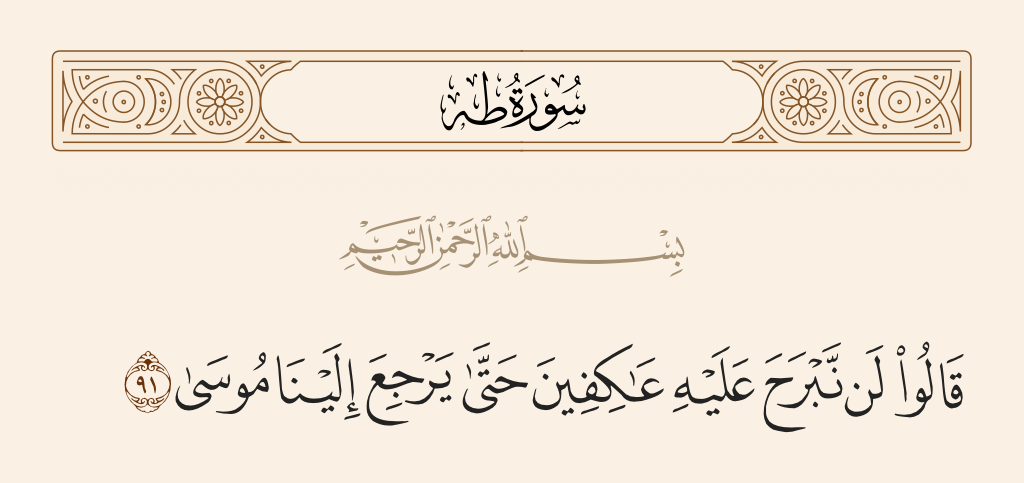 سُورَةُ طه
بِسْمِ ٱللَّهِ ٱلرَّحْمَٰنِ ٱلرَّحِيمِ
قَالُوا۟ لَن نَّبْرَحَ عَلَيْهِ عَـٰكِفِينَ حَتَّىٰ يَرْجِعَ إِلَيْنَا مُوسَىٰ ٩١